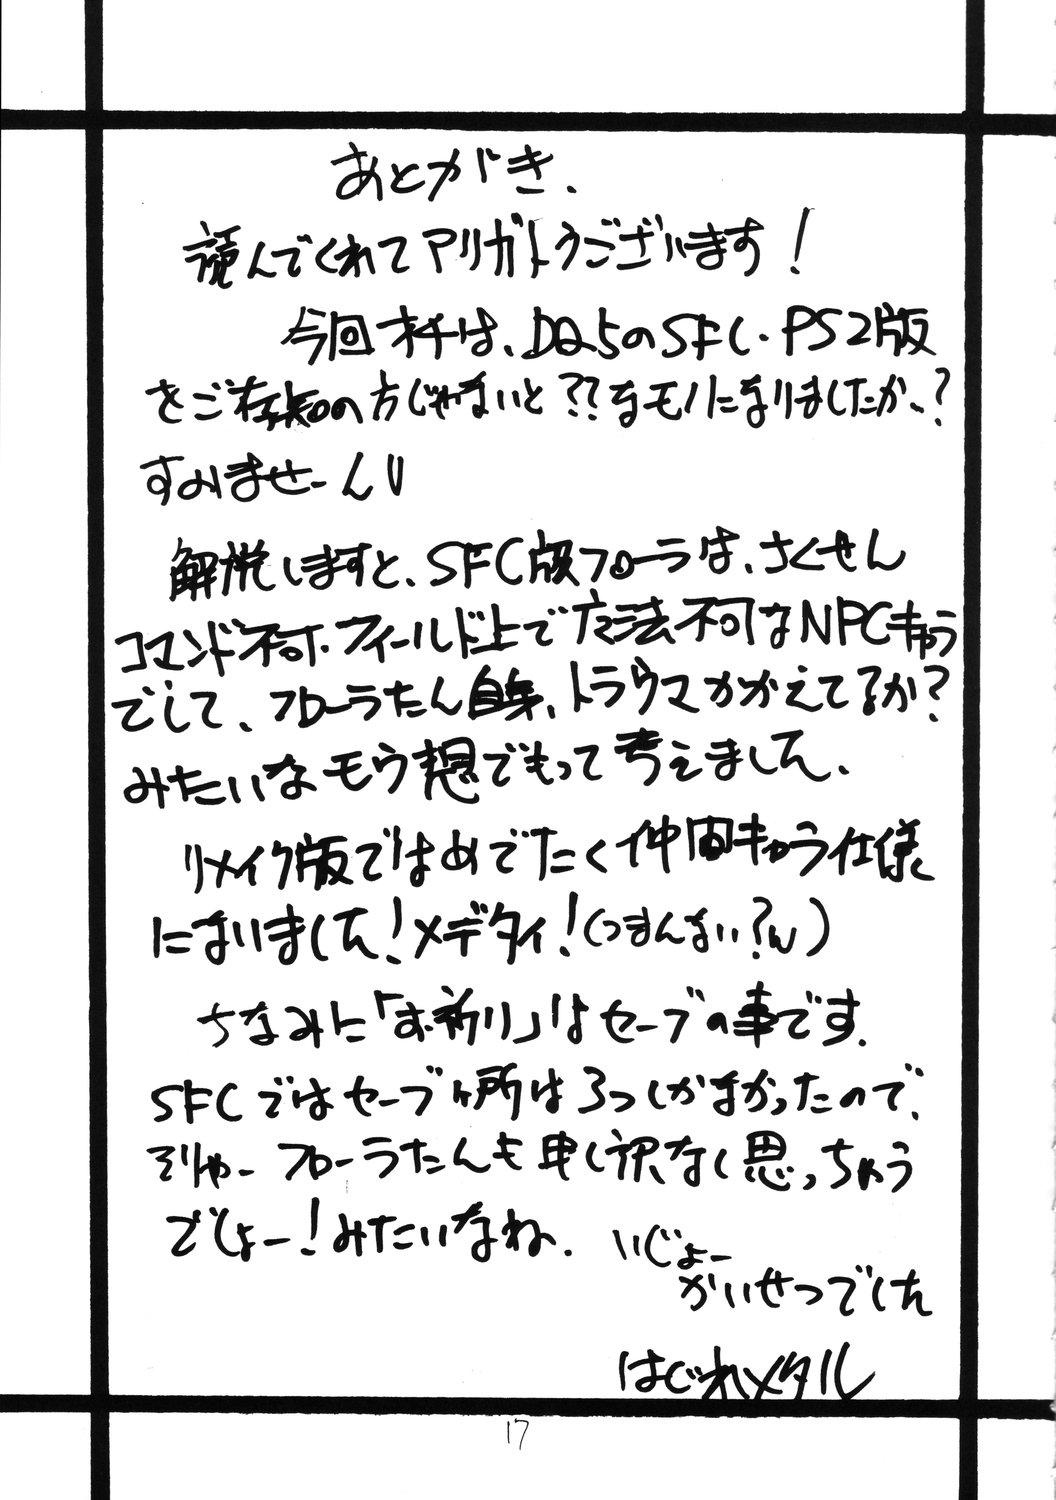 あとがき、
読んでくれてアリガトウございます！
今回オチは、DQ5のSFC・PS2版
をご存知の方じゃないと??なモノになりましたか、?
すみませーん
解説しますと、SFC版フローラは、さくせん
コマンド不可、フィールド上で魔法不可なNPCキャラ
でして、フローラたん自身、トラウマかかえてるか?
みたいなモウ想でもって考えました、
リメイク版ではめでたく仲間キャラ仕様
になりました！メデタイ！(つまんない?w)
ちなみに「お祈り」はセーブの事です.
SFCではセーブヶ所は3つしかなかったので、
そりゃーフローラたんも申し訳なく思っちゃう
でしょー！みたいなね.
いじょー
かいせつでした
はぐれメタル
17